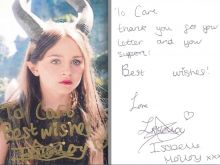 To Care
Best wishes
To Care
thank you for your
letter and your
support!
Best wishes!
Love
Isobelle
Molloy xxx